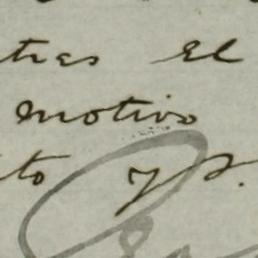 tras el
motivo
to y S.